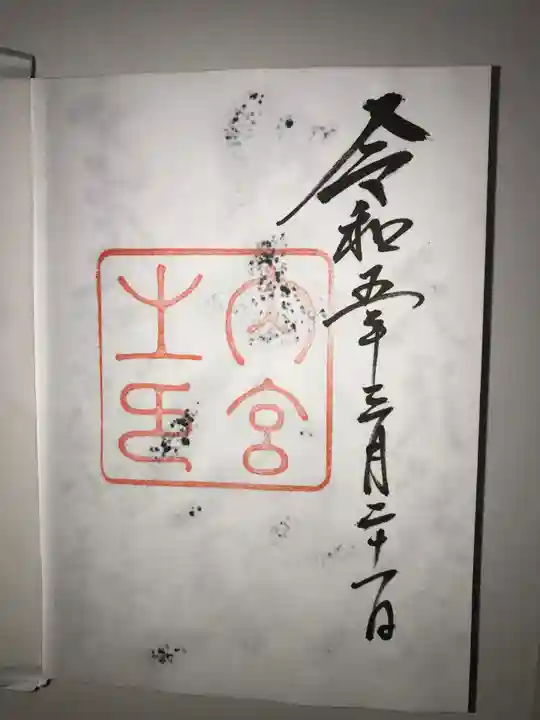 令和五年三月二十一日
内宮
之印